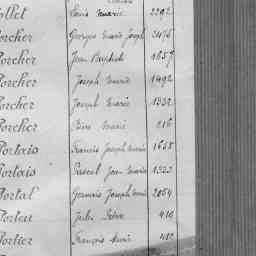 ollet Louis Marie 2292
orcher Georges Marie Joseph 3176
orcher Jean Baptiste 1657
Porcher Joseph Marie 1492
Porcher Joseph Marie 1332
Porcher Pierre Marie 216
Portais Francis Joseph Marie 1655
Portais Pascal Jean Marie 1323
Portal Germain Joseph Marie 2054
Jules Pierre 410
Portier François Marie